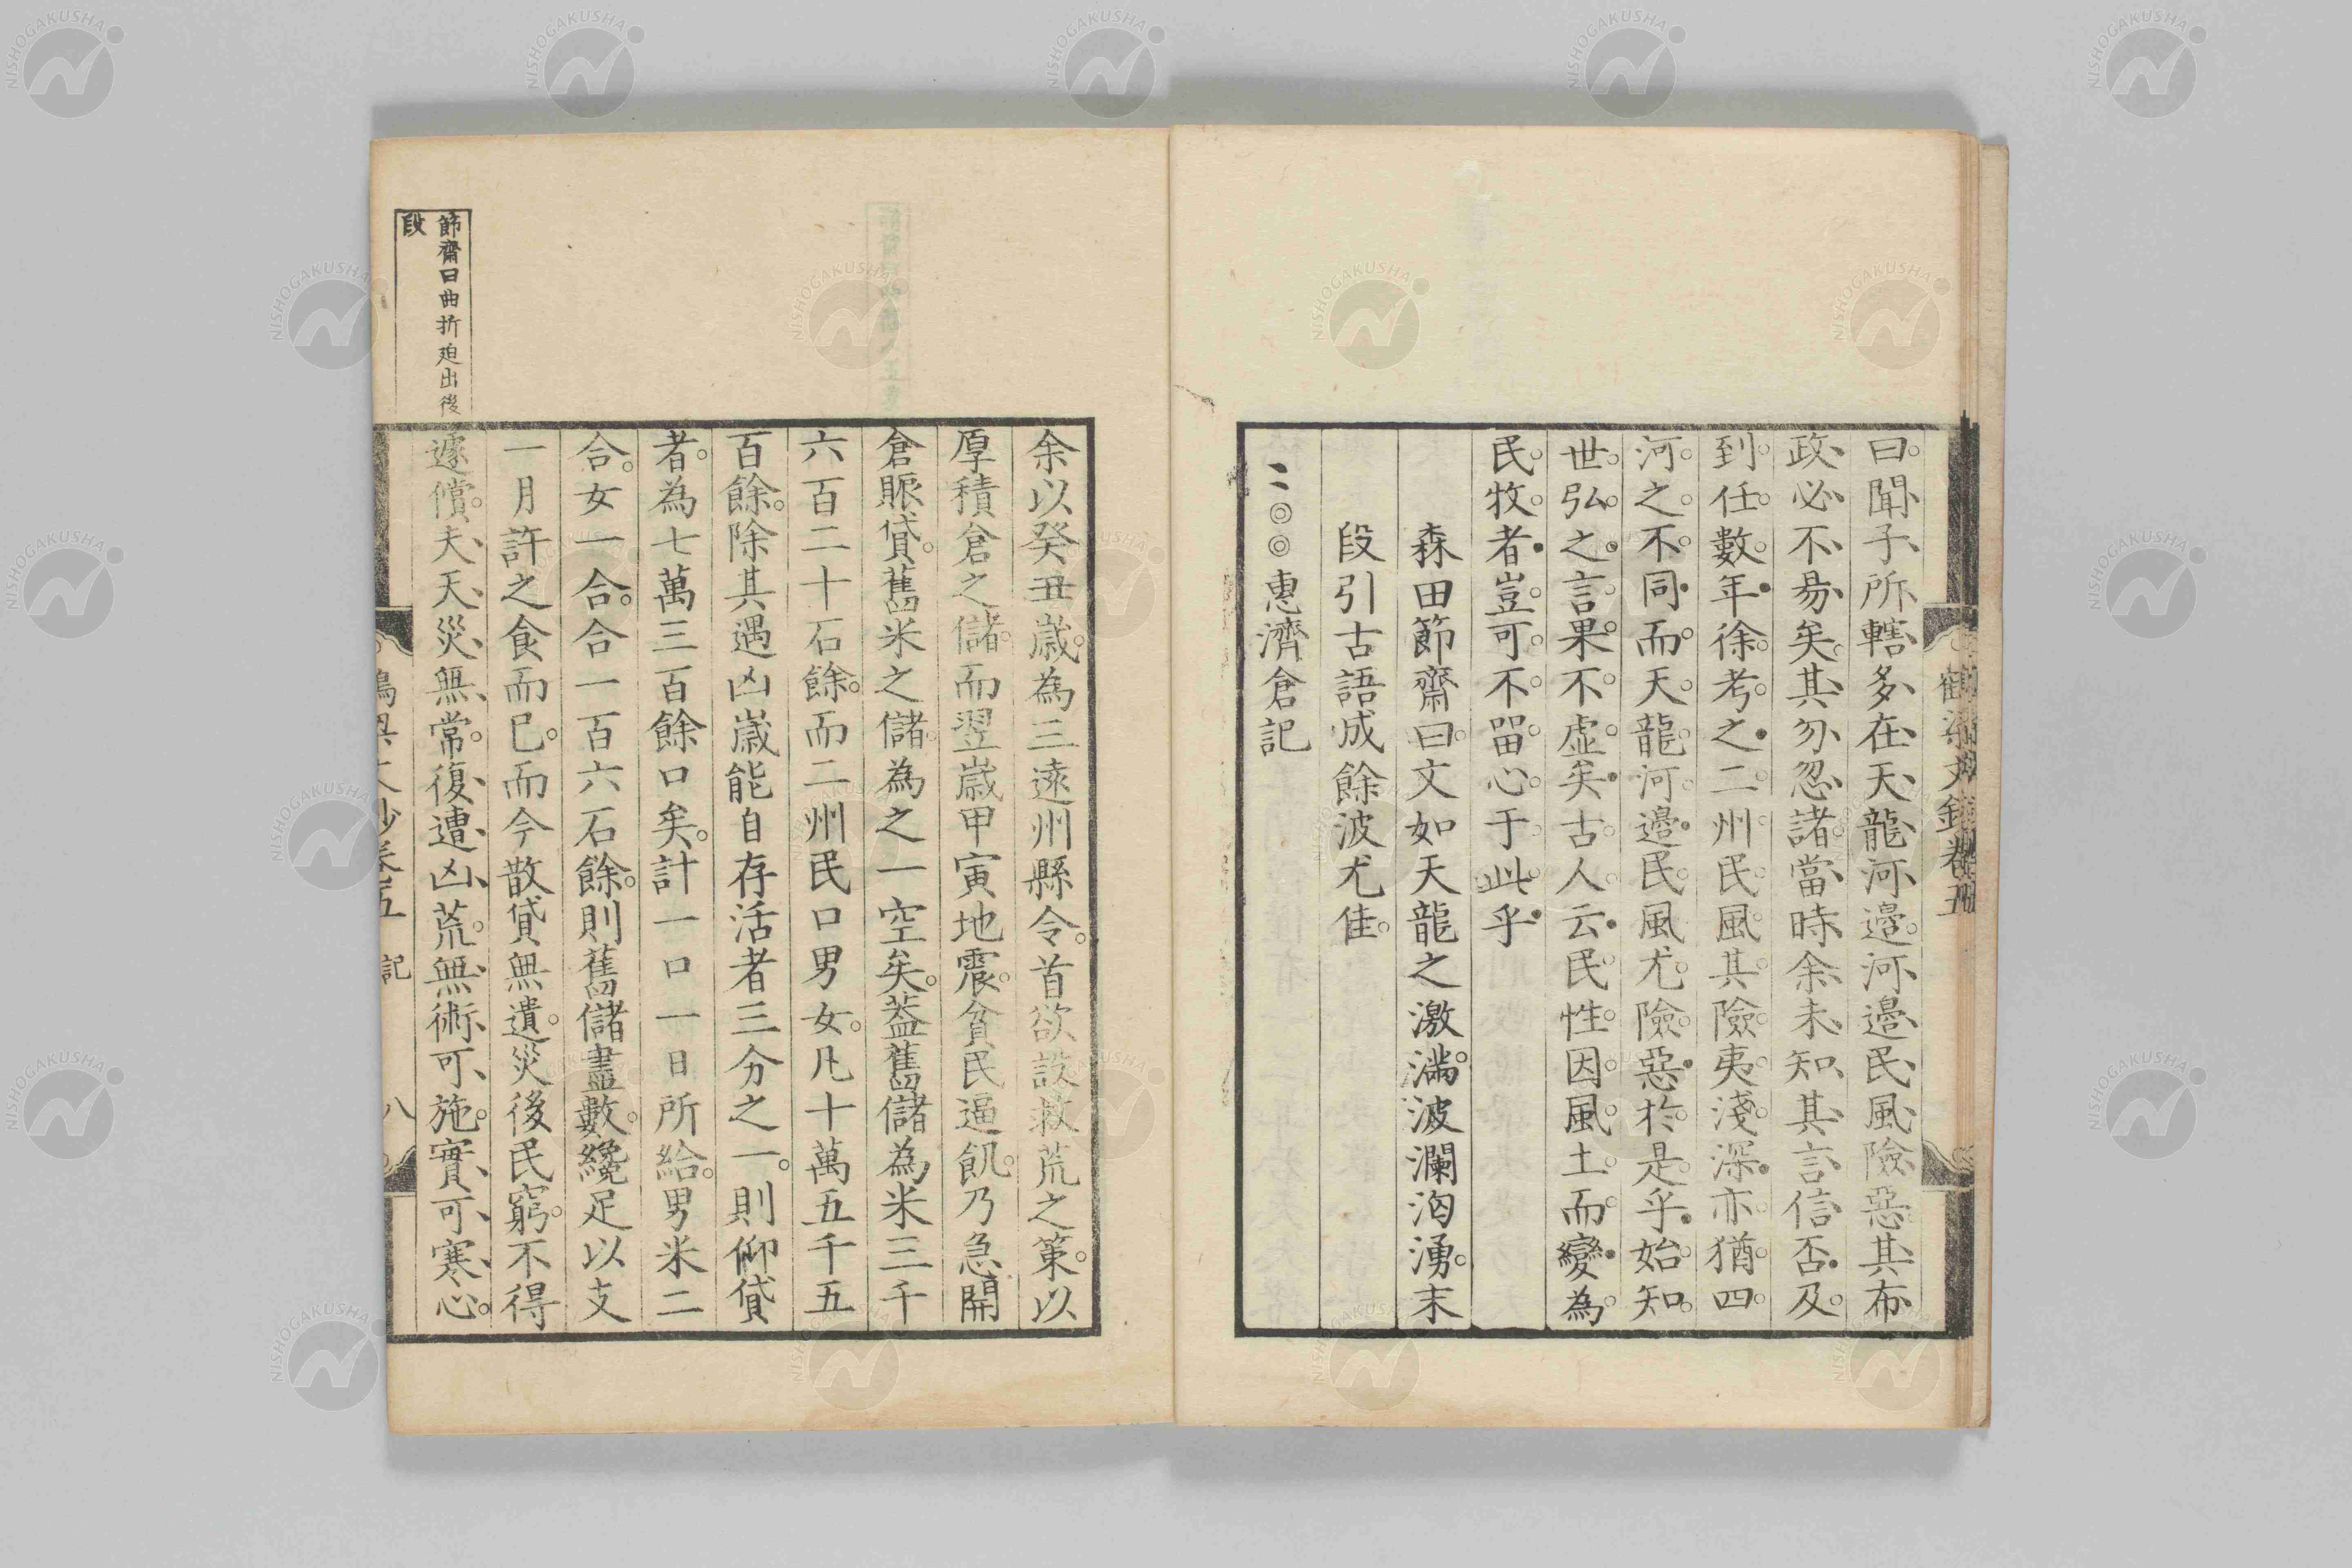 曰聞子所轄多在天龍河邉河邉民風險惡其布
政必不易矣其勿忽諸當時余未知其言信否及
到任數年徐考之二州民風其險夷淺深亦猶四
河之不同而天龍河邉民風尤險惡於是乎始知
世弘之言果不虛矣古人云民性因風土而變為
民牧者豈可不留心于此乎
森田節齋曰文如天龍之激湍波瀾洶湧末
段引古語成餘波尤佳
惠濟倉記
余以癸丑歲為三遠州縣令首欲設救荒之策以
厚積倉之儲而翌歲甲寅地震貧民逼飢乃急開
倉賑貸舊米之儲為之一空矣蓋舊儲為米三千
六百二十石餘而二州民口男女凡十萬五千五
百餘除其遇凶歲能自存活者三分之一則仰貸
者為七萬三百餘口矣計一口一日所給男米二
合女一合合一百六石餘則舊儲盡數纔足以支
一月許之食而已而今散貸無遺災後民窮不得
遽償夫天災無常復遭凶荒無術可施實可寒心
節齋曰曲折廹出後
段
記
八
NISHOGAKUSHA